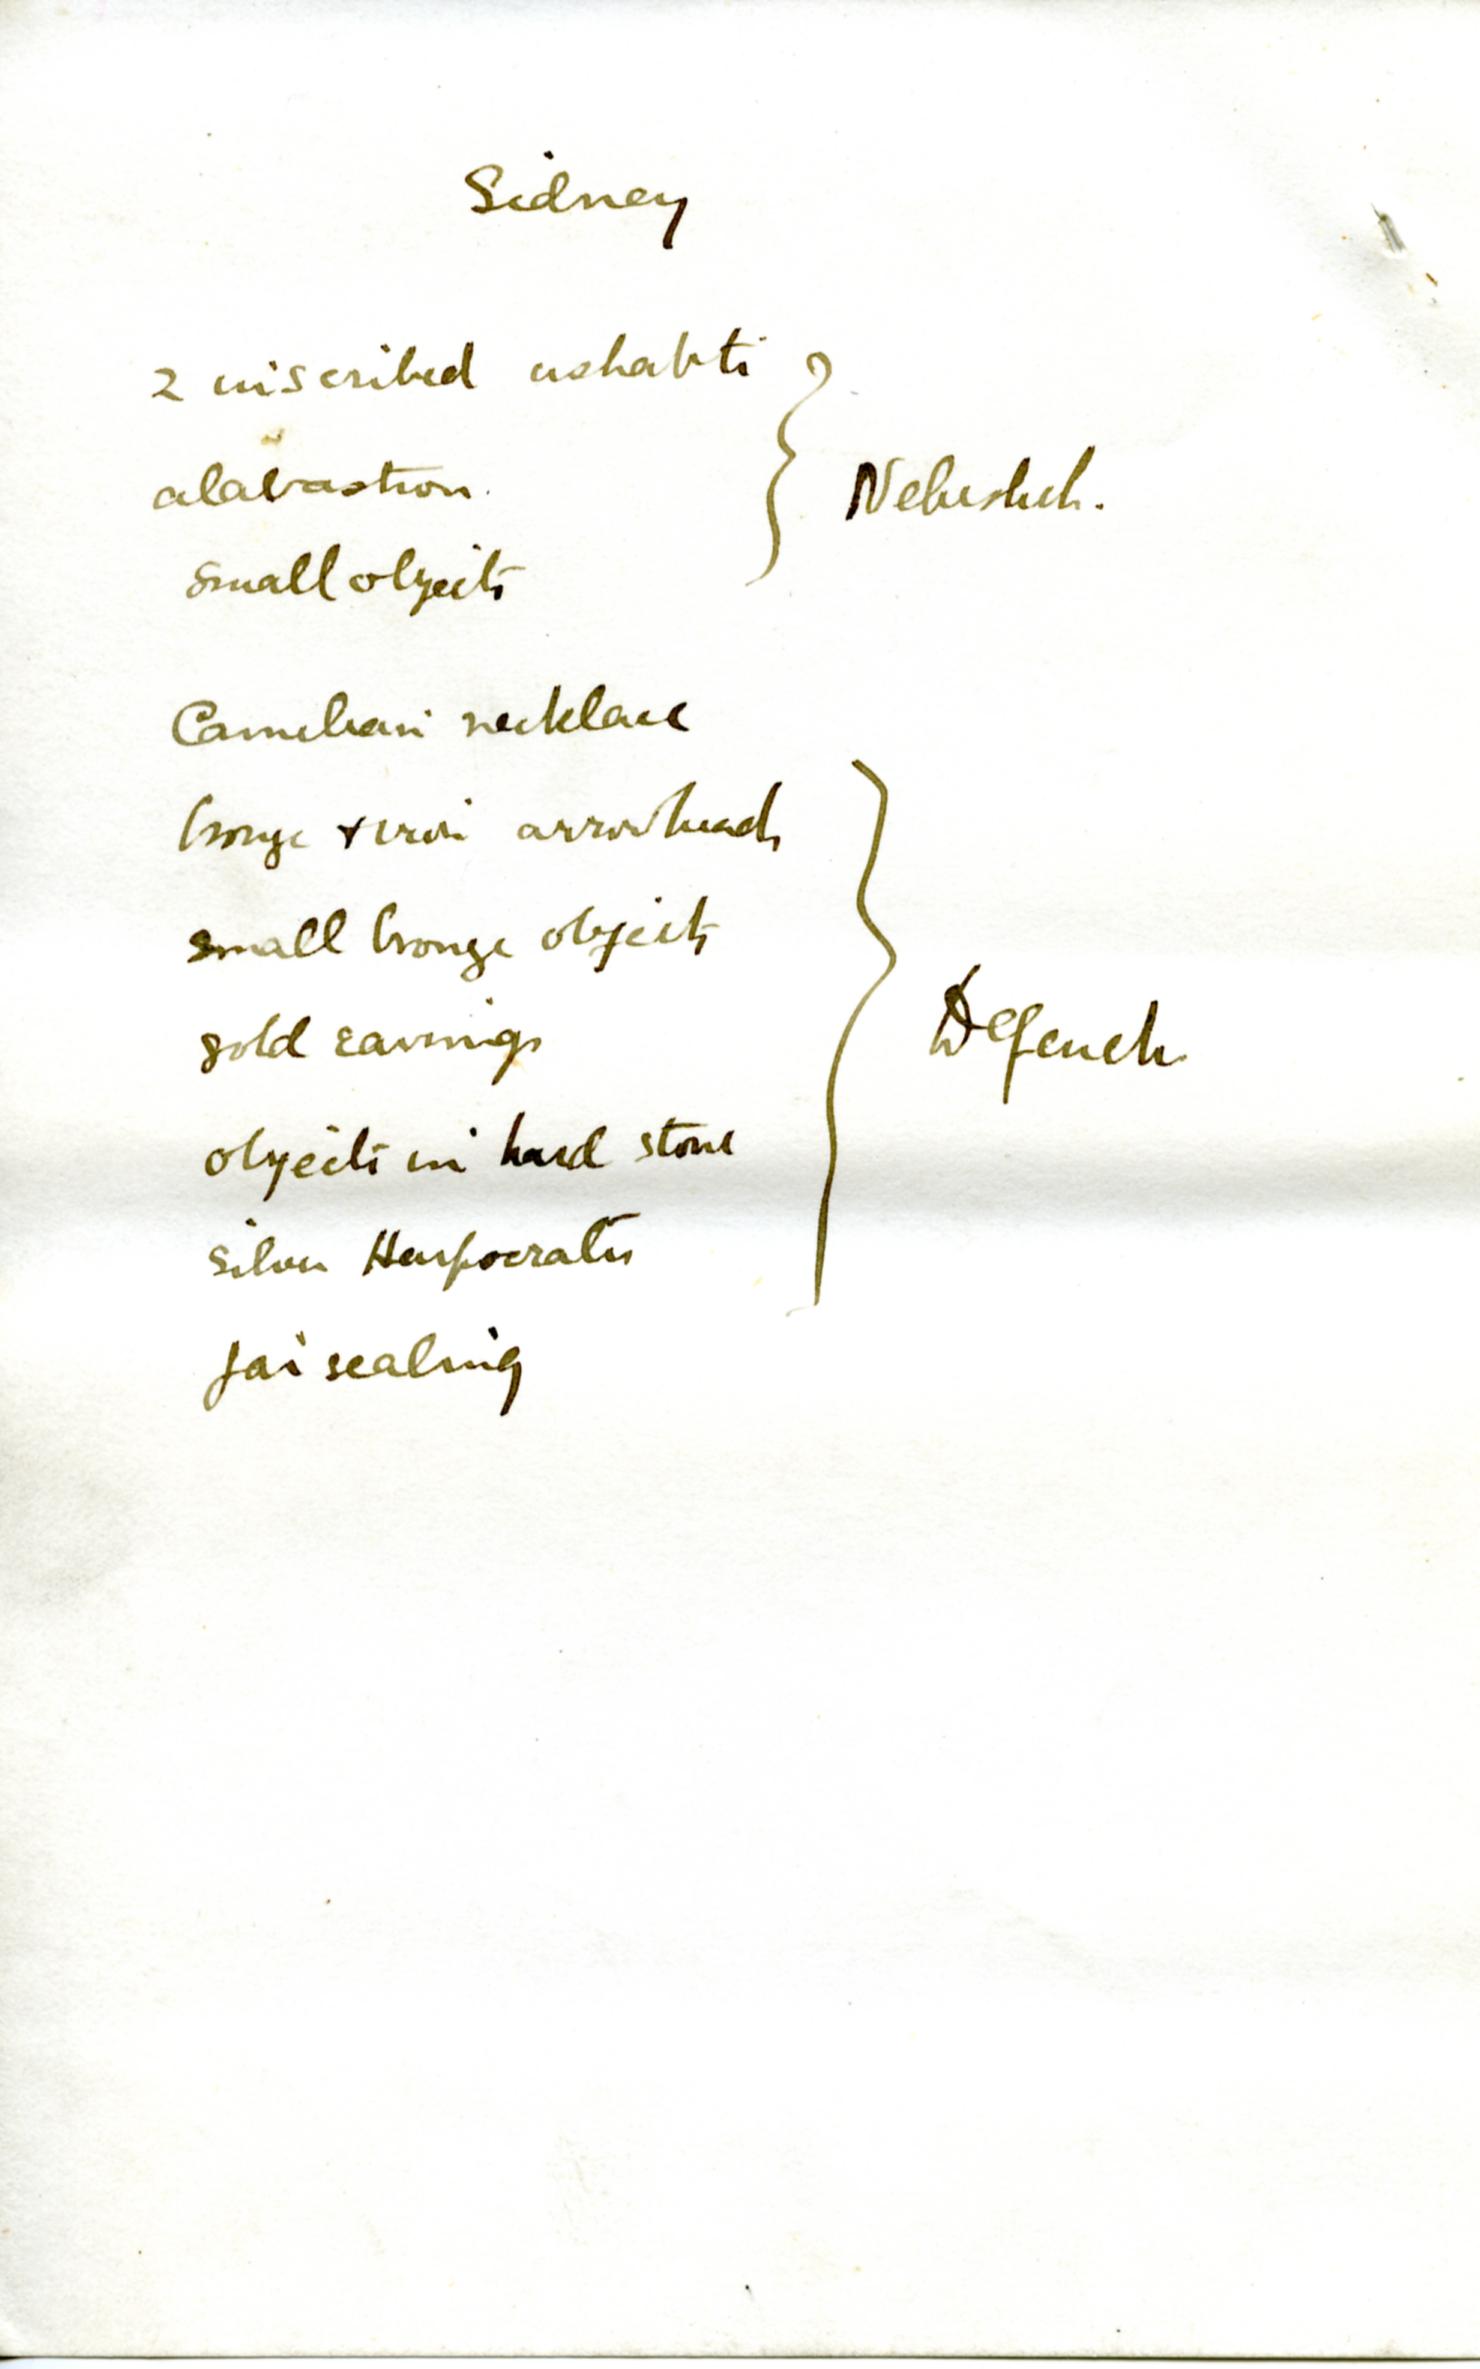 Sidney
2 inscribed ushabti
alabastron
Nebesheh.
small objects
Carnelian necklace
bronze + iron arrowheads
small bronze objects
gold earrings
Defeneh
objects in hard stone
silver Harpocrates
jar sealing